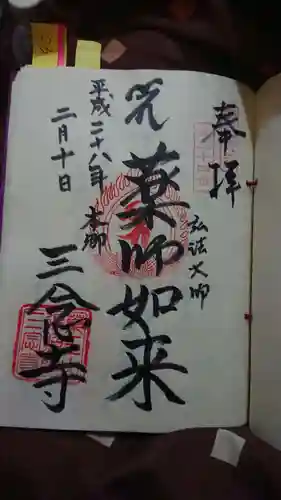 奉拝
弘法大師
薬師如来
本師
平成二十八年
二月十日
三念寺